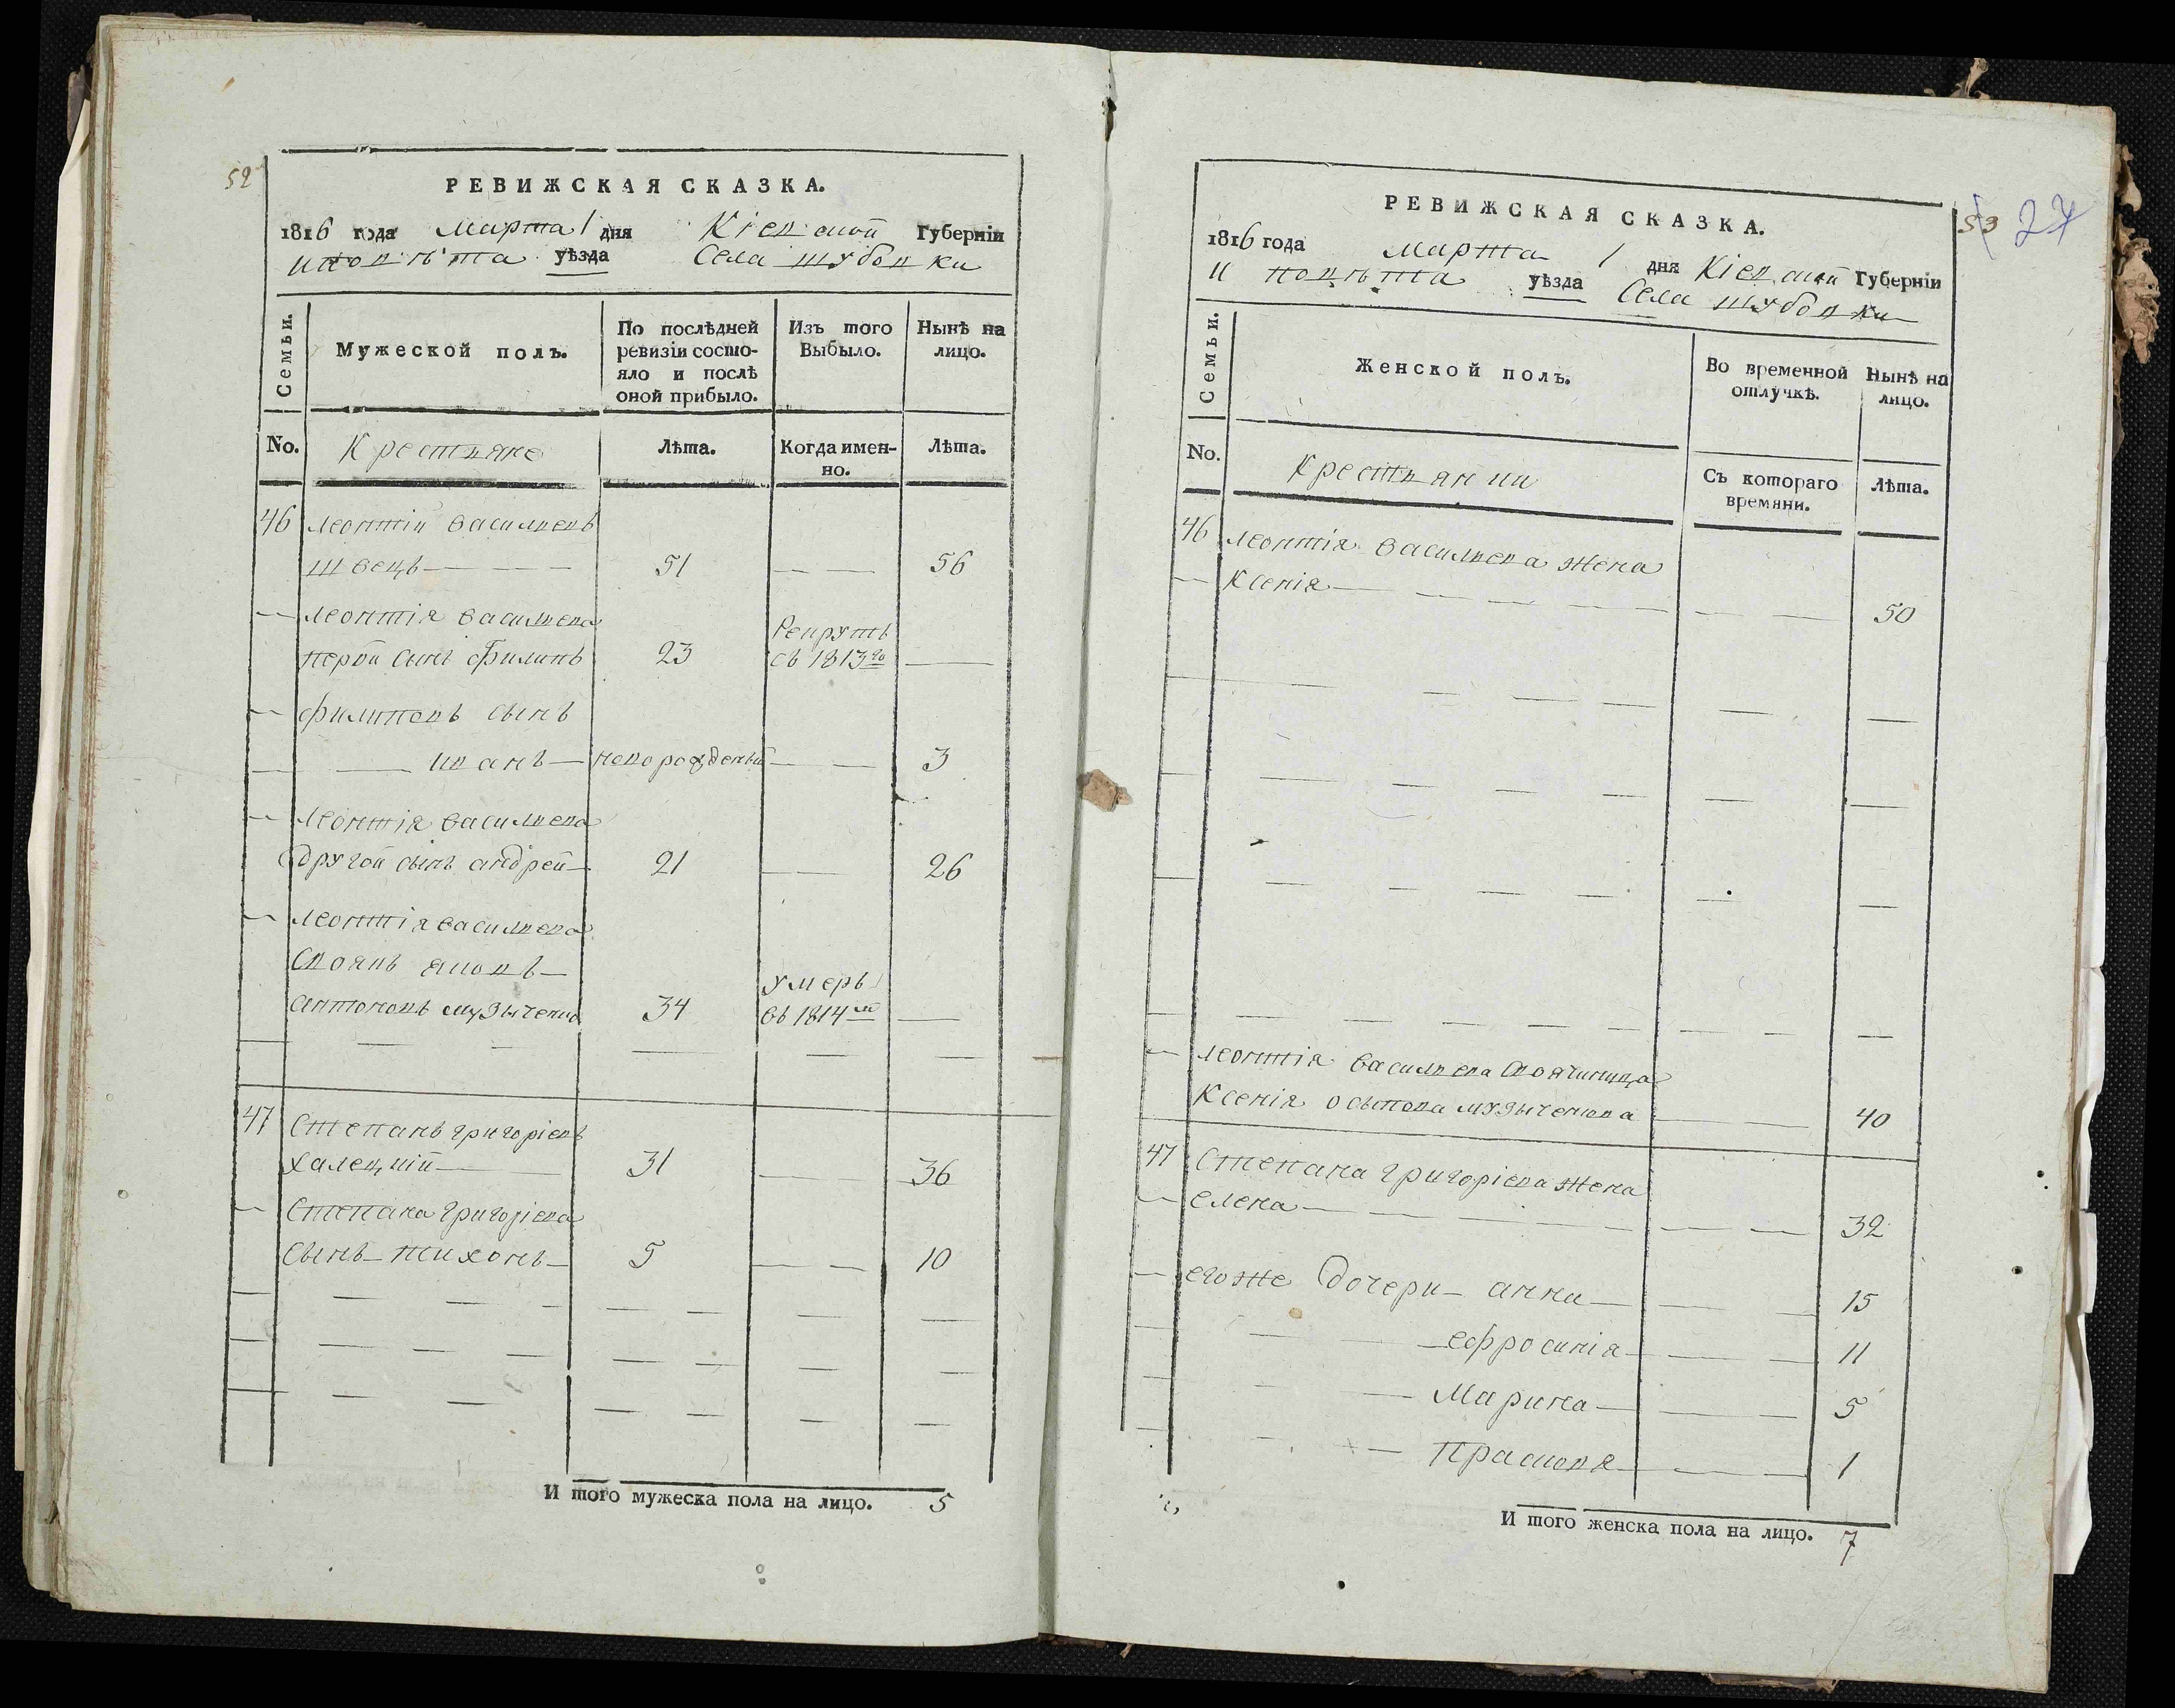 52
РЕВИЖСКАЯ СКАЗКА.
1816 года Марта 1 дня Кіевской Губерніи
уѣзда Села Шубовки
Семьи.
Мужеской полъ.
По послѣдней ревизіи состояло и послѣ оной прибыло.
Изъ того Выбыло.
Нынѣ на лицо.
No.
Крестьяне
Лѣта.
Когда именно.
Лѣта.
46 Леонтій Васильевъ
Швецъ 51 56
Леонтія Васильева
первой сынъ Филипъ 23 Рекрутъ съ 1813го
Филиповъ сынъ
Иванъ неворожденый 3
Леонтія Васильева
другой сынъ Андрей 21 26
Леонтія Васильева
Своякъ Яковъ
Антоновъ Музыченко 34 умеръ въ 1814м
47 Степанъ Григоріевъ
Халецкій 31 36
Степана Григоріева
Сынъ Тихонъ 5 10
И того мужеска пола на лицо. 5
53 27
РЕВИЖСКАЯ СКАЗКА.
1816 года Марта 1 дня Кіевской Губерніи
уѣзда Села Шубовки
Семьи.
Женской полъ.
Во временной отлучкѣ.
Нынѣ на лицо.
No.
Крестьянки
Съ котораго времяни.
Лѣта.
46 Леонтія Васильева жена
Ксенія 50
Леонтія Васильева Своячиница
Ксенія Осыпова Музыченкова 40
47 Степана Григоріева жена
Елена 32
егоже дочери Анна 15
Ефросинія 11
Марина 5
Прасковя 1
И того женска пола на лицо. 7